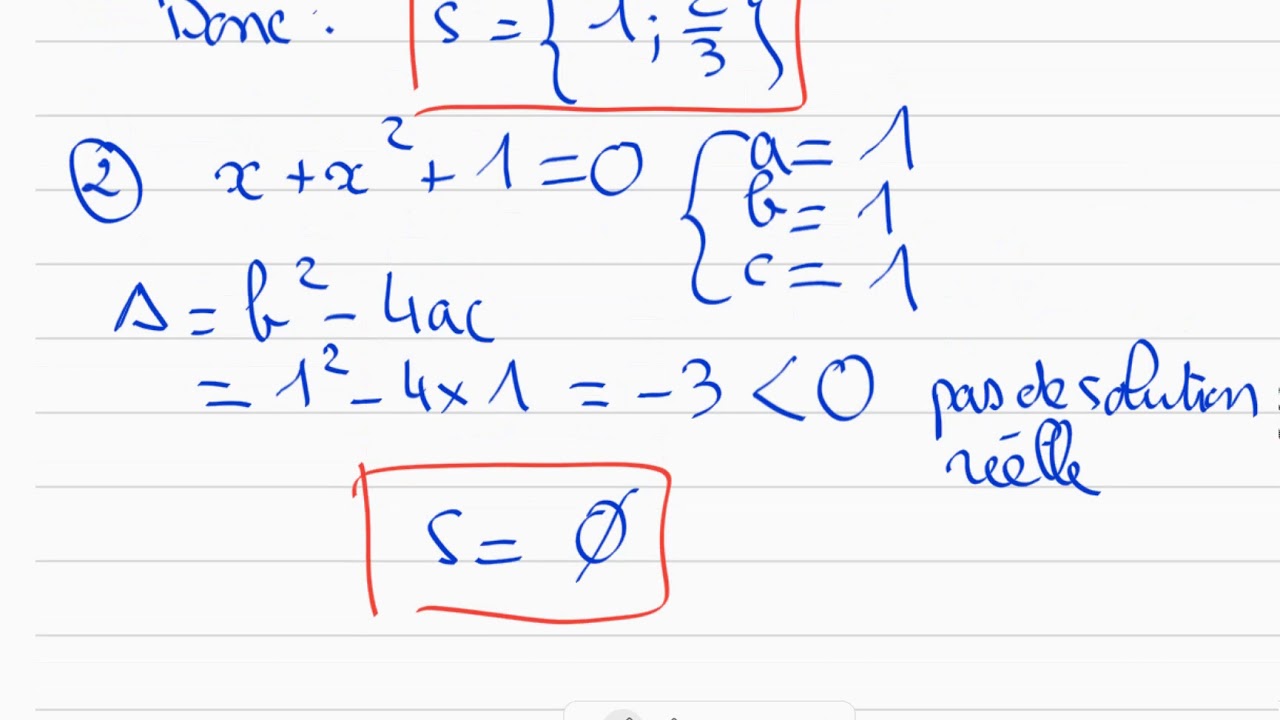 Donc : S = { 1 ; 2/3 }
② x + x² + 1 = 0 { a = 1
b = 1
c = 1
Δ = b² - 4ac
= 1² - 4 × 1 = -3 < 0 pas de solution
réelle
S = ∅